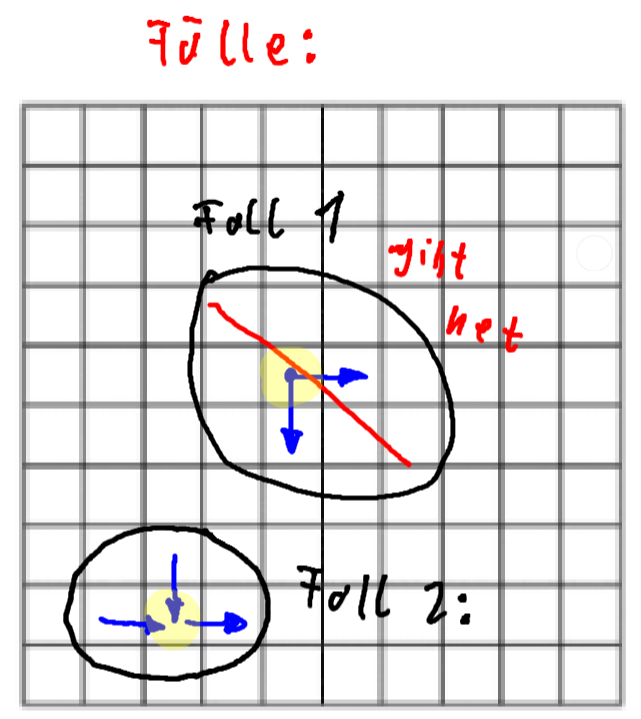 Fälle:
Fall 1
gibt
net
Fall 2: